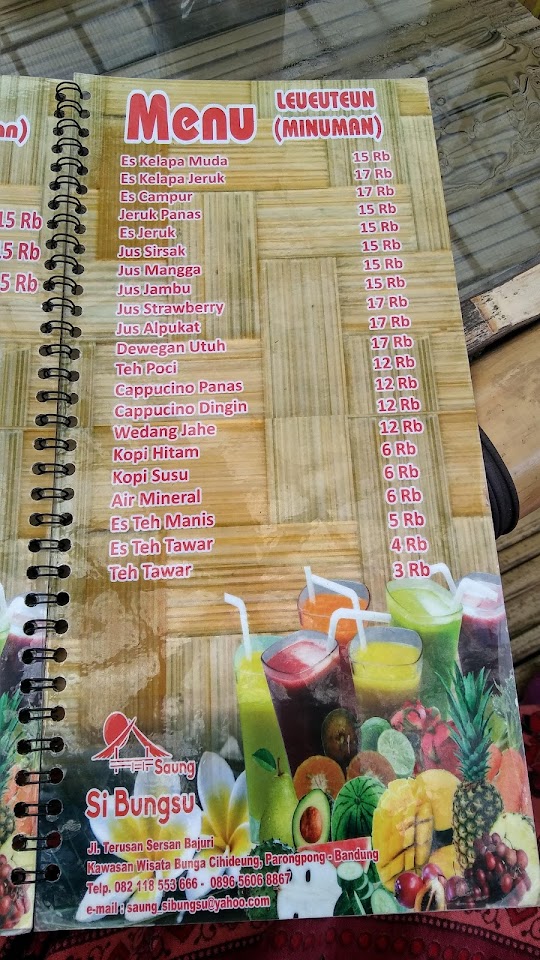 an)
15 Rb
15 Rb
5 Rb
Menu LEUEUTEUN
(MINUMAN)
Es Kelapa Muda 15 Rb
Es Kelapa Jeruk 17 Rb
Es Campur 17 Rb
Jeruk Panas 15 Rb
Es Jeruk 15 Rb
Jus Sirsak 15 Rb
Jus Mangga 15 Rb
Jus Jambu 15 Rb
Jus Strawberry 17 Rb
Jus Alpukat 17 Rb
Dewegan Utuh 17 Rb
Teh Poci 12 Rb
Cappucino Panas 12 Rb
Cappucino Dingin 12 Rb
Wedang Jahe 12 Rb
Kopi Hitam 6 Rb
Kopi Susu 6 Rb
Air Mineral 6 Rb
Es Teh Manis 5 Rb
Es Teh Tawar 4 Rb
Teh Tawar 3 Rb
Saung
Si Bungsu
Jl. Terusan Sersan Bajuri
Kawasan Wisata Bunga Cihideung, Parongpong - Bandung
Telp. 082 118 553 666 - 0896 5606 8867
e-mail : saung_sibungsu@yahoo.com